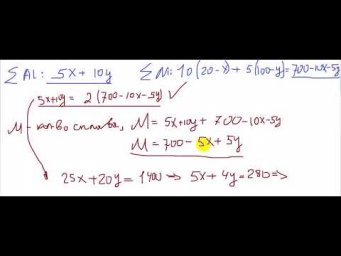 ∑ Al: 5x + 10y   ∑ Ni: 10(20-x) + 5(100-y) = 700-10x-5y
5x+10y = 2(700-10x-5y) ✓
M - кол-во сплава, M = 5x+10y + 700-10x-5y
M = 700 - 5x + 5y
25x + 20y = 1400 → 5x + 4y = 280 ⇒